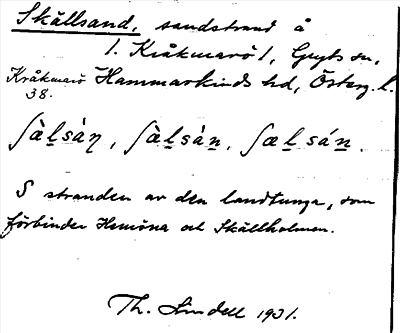 Skällsand, sandstrand å
1. Kråkmarö 1, Gryts sn,
Kråkmarö Hammarkinds hd, Österg. l.
38.
ʃæ̀l̠sàn̠, ʃæ̀l̠sàn̠, ʃæl̠sán̠.
S stranden av den landtunga, som
förbinder Hemöna och Skällholmen.
Th. Lindell 1931.